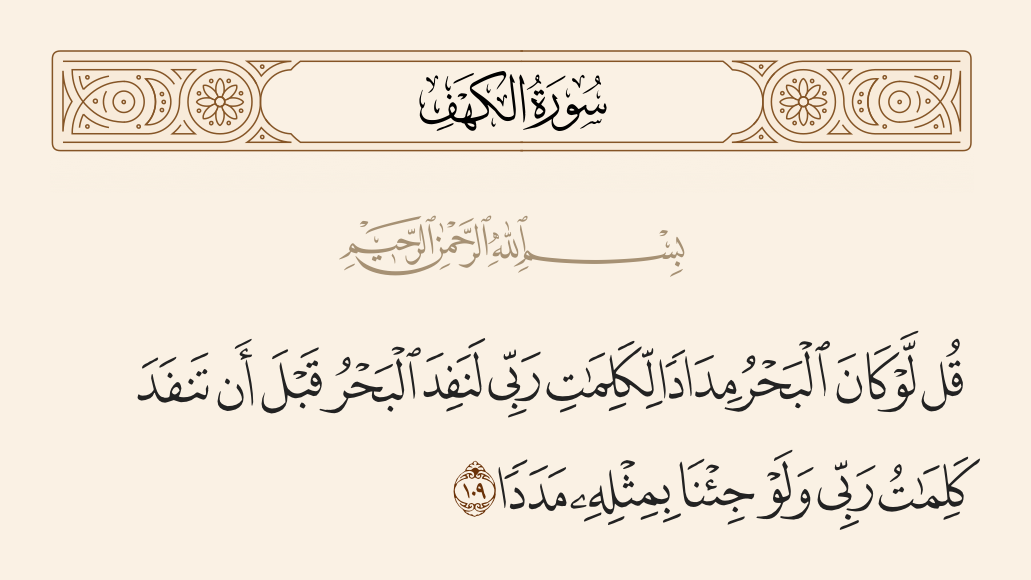 سُورَةُ الكَهْفِ
بِسْمِ ٱللَّهِ ٱلرَّحْمَٰنِ ٱلرَّحِيمِ
قُل لَّوْ كَانَ ٱلْبَحْرُ مِدَادًا لِّكَلِمَٰتِ رَبِّى لَنَفِدَ ٱلْبَحْرُ قَبْلَ أَن تَنفَدَ
كَلِمَٰتُ رَبِّى وَلَوْ جِئْنَا بِمِثْلِهِۦ مَدَدًا ١٠٩